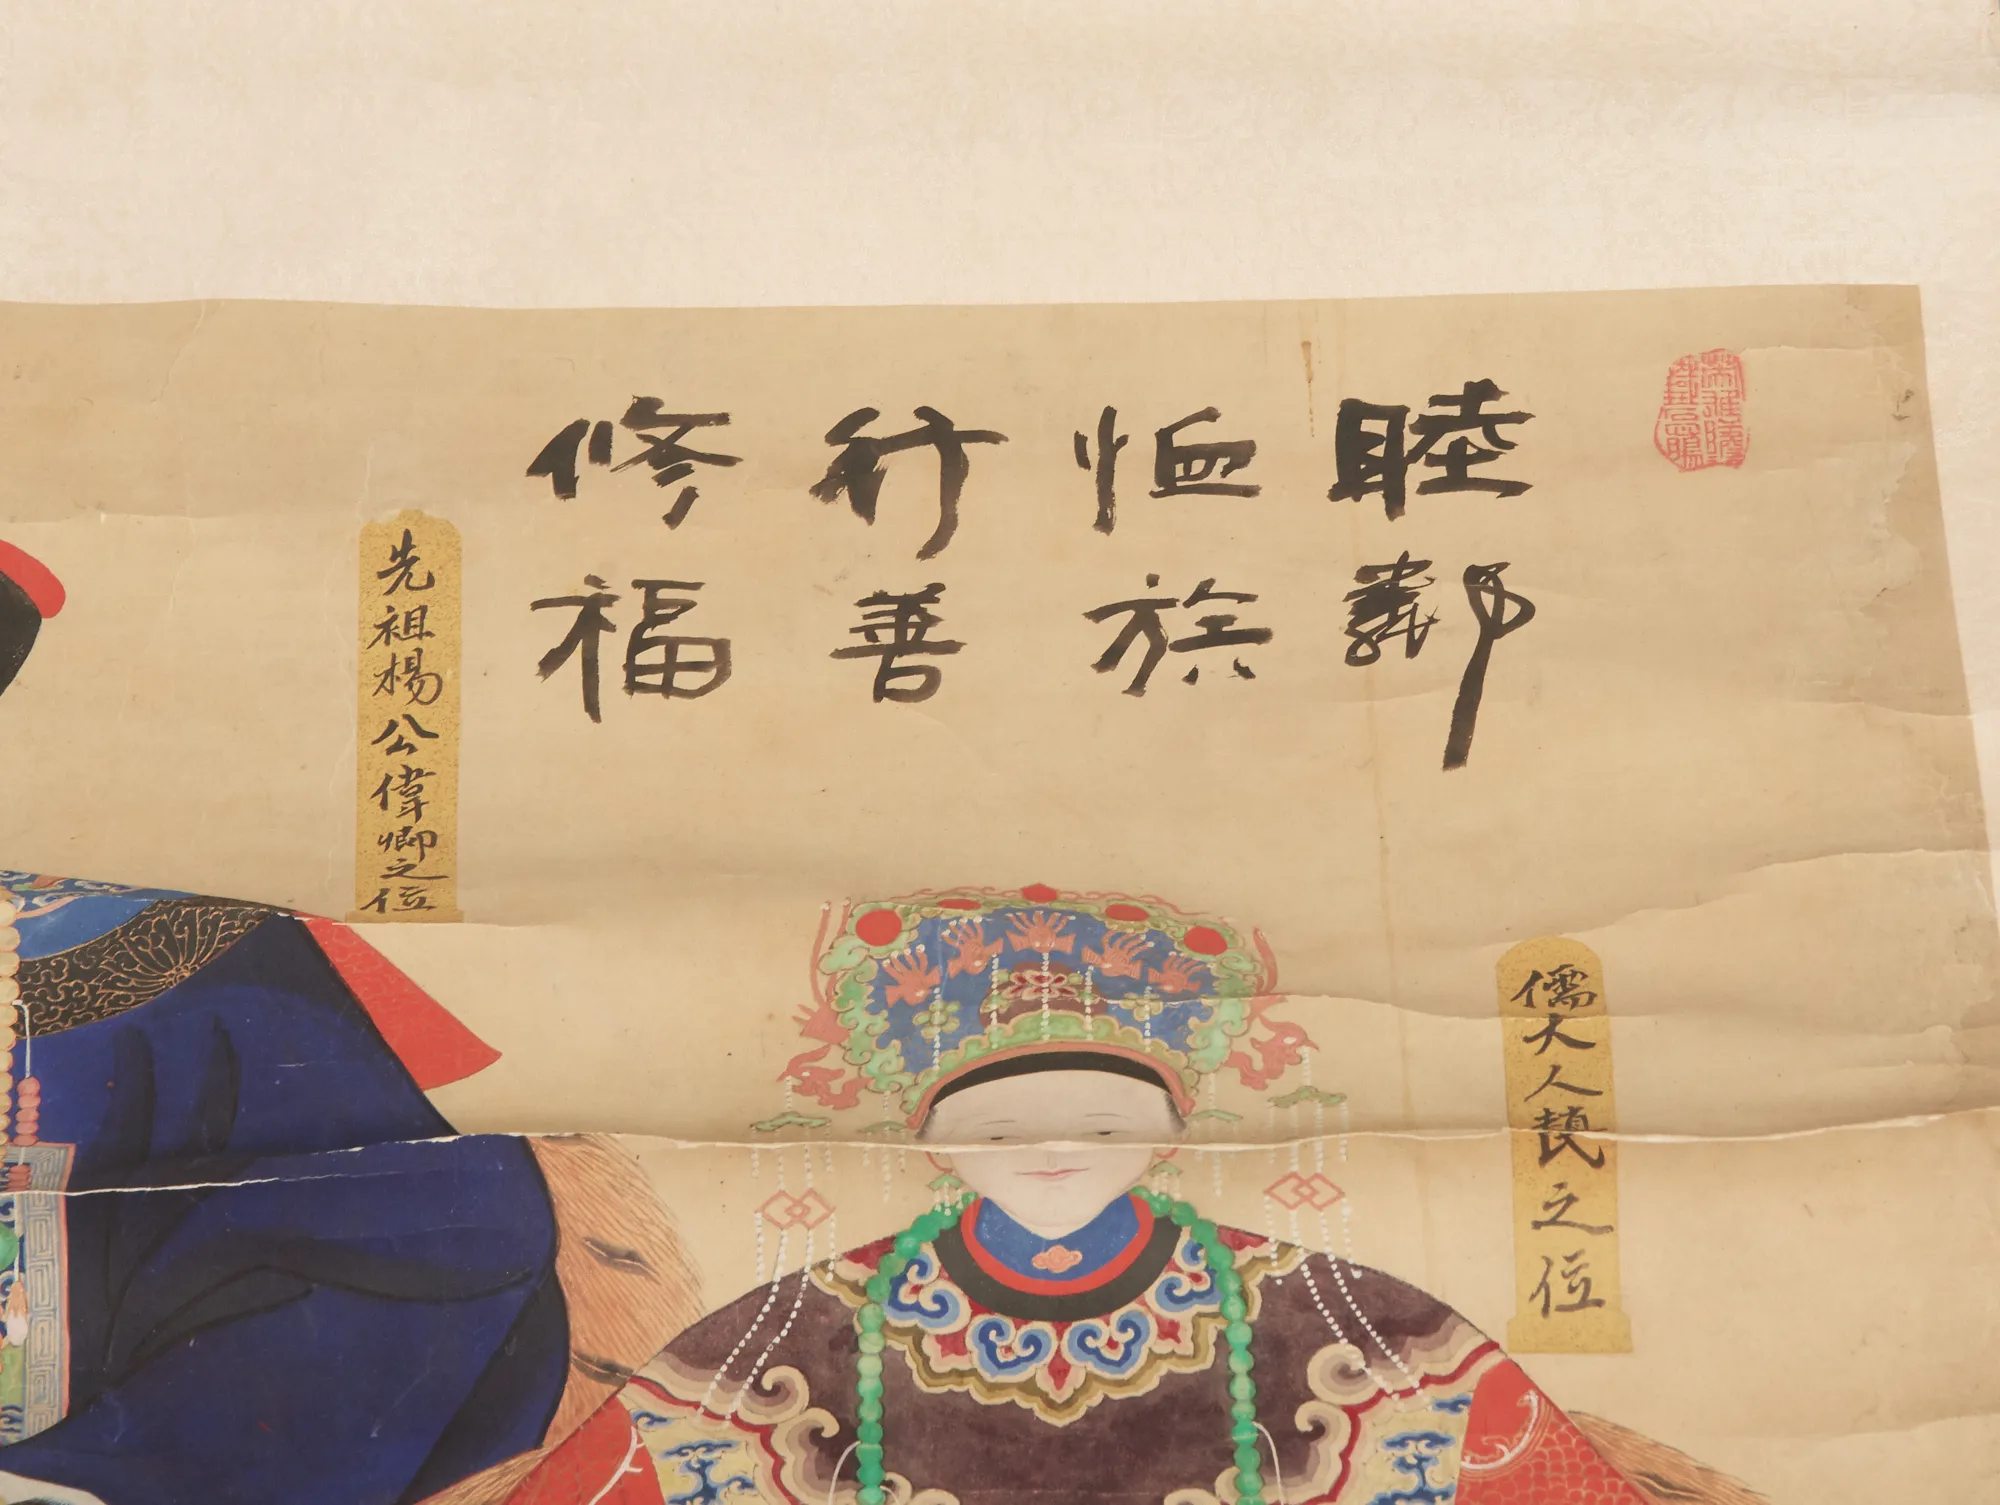 睦鄰
恤族
行善
修福
儒大人之位
先祖楊公偉卿之位